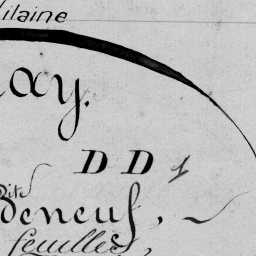 ilaine
ay.
D D 1
dite
deneuf,
feuilles,